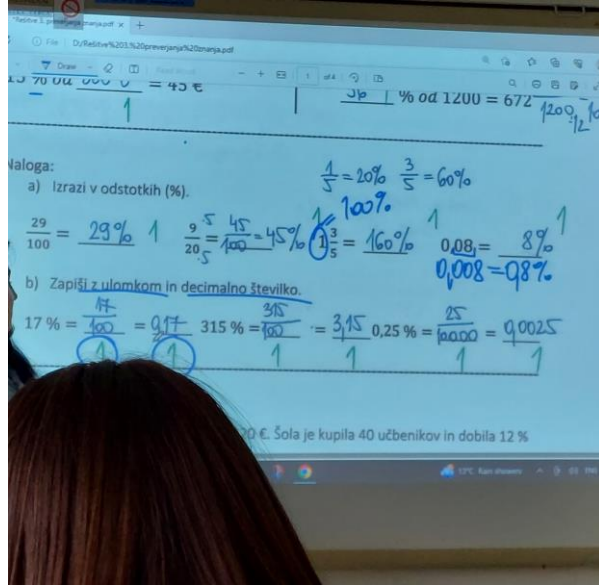 *Rešitve 3. preverjanja znanja.pdf × +
File D:/Rešitve%203.%20preverjanja%20znanja.pdf
Draw
1 of 4
= 45 € 56 % od 1200 = 672
1
Naloga:
1/5 = 20% 3/5 = 60%
a) Izrazi v odstotkih (%).
100%
29/100 = 29% 1 9/20 ·5/·5 = 45/100 = 45% 1 1 3/5 = 160% 1 0,08 = 8% 1
0,008 = 0,8%
b) Zapiši z ulomkom in decimalno številko.
17 % = 17/100 = 0,17 315 % = 315/100 = 3,15 0,25 % = 25/10000 = 0,0025
1 1 1 1 1 1
20 €. Šola je kupila 40 učbenikov in dobila 12 %
17°C Rain showers